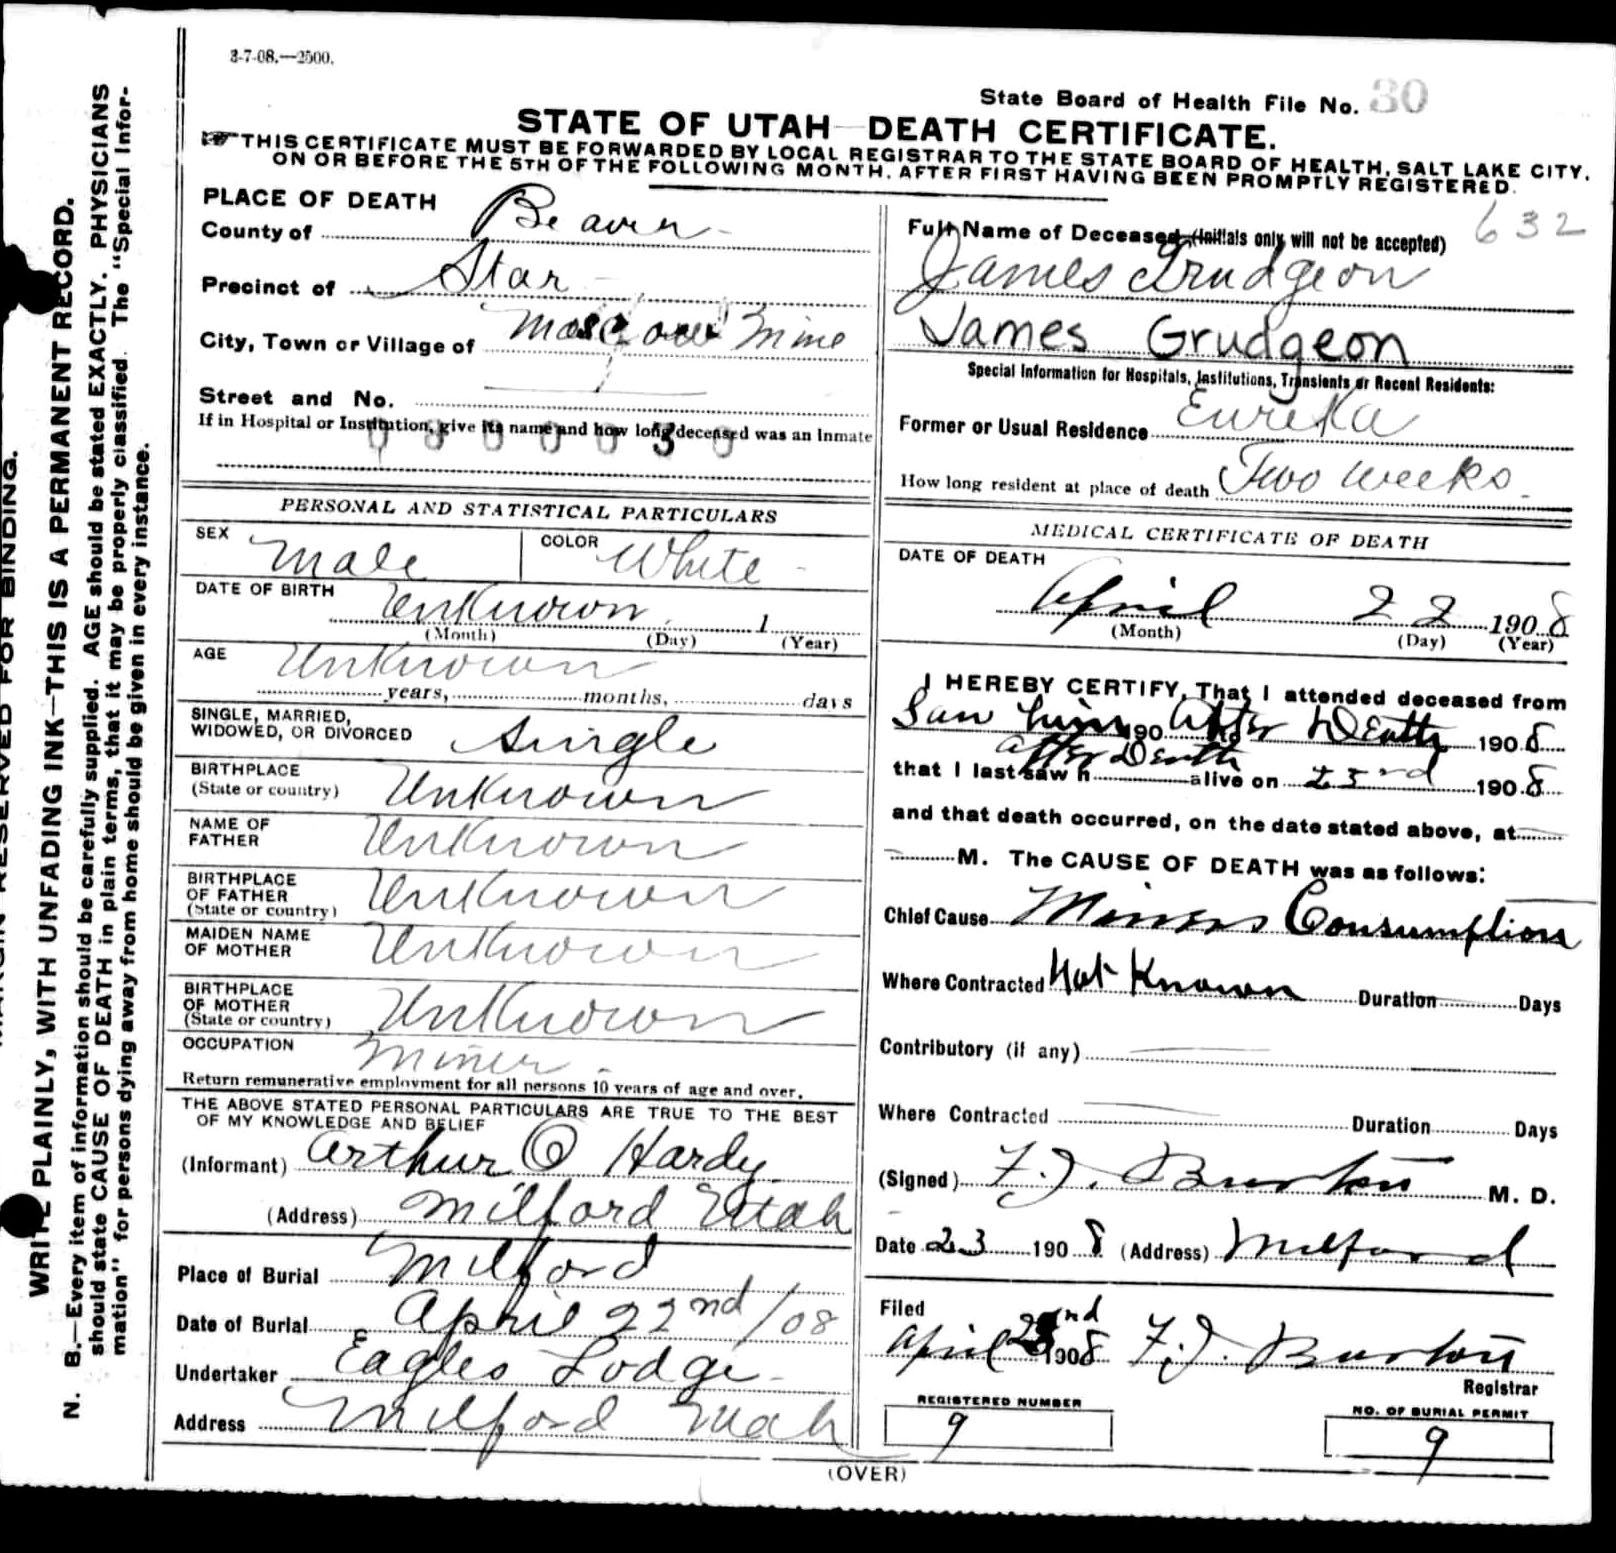 3-7-08.—2500.
State Board of Health File No. 30
STATE OF UTAH—DEATH CERTIFICATE.
THIS CERTIFICATE MUST BE FORWARDED BY LOCAL REGISTRAR TO THE STATE BOARD OF HEALTH, SALT LAKE CITY,
ON OR BEFORE THE 5TH OF THE FOLLOWING MONTH, AFTER FIRST HAVING BEEN PROMPTLY REGISTERED.
WRITE PLAINLY, WITH UNFADING INK—THIS IS A PERMANENT RECORD.
N. B.—Every item of information should be carefully supplied. AGE should be stated EXACTLY. PHYSICIANS
should state CAUSE OF DEATH in plain terms, that it may be properly classified. The "Special Infor-
mation" for persons dying away from home should be given in every instance.
PLACE OF DEATH
County of Beaver
Precinct of Star
City, Town or Village of Moscow Mine
Street and No.
If in Hospital or Institution, give its name and how long deceased was an Inmate
PERSONAL AND STATISTICAL PARTICULARS
SEX Male COLOR White
DATE OF BIRTH Unknown 1
(Month) (Day) (Year)
AGE Unknown
years, months, days
SINGLE, MARRIED,
WIDOWED, OR DIVORCED Single
BIRTHPLACE
(State or country) Unknown
NAME OF
FATHER Unknown
BIRTHPLACE
OF FATHER
(State or country) Unknown
MAIDEN NAME
OF MOTHER Unknown
BIRTHPLACE
OF MOTHER
(State or country) Unknown
OCCUPATION Miner
Return remunerative employment for all persons 10 years of age and over.
THE ABOVE STATED PERSONAL PARTICULARS ARE TRUE TO THE BEST
OF MY KNOWLEDGE AND BELIEF
(Informant) Arthur O Hardy
(Address) Milford Utah
Place of Burial Milford
Date of Burial April 22nd/08
Undertaker Eagles Lodge
Address Milford Utah
Full Name of Deceased (Initials only will not be accepted) 632
James Grudgeon
James Grudgeon
Special Information for Hospitals, Institutions, Transients or Recent Residents:
Former or Usual Residence Eureka
How long resident at place of death Two weeks
MEDICAL CERTIFICATE OF DEATH
DATE OF DEATH
April 22 1908
(Month) (Day) (Year)
I HEREBY CERTIFY, That I attended deceased from
Saw him 190 After Death 1908
after Death
that I last saw h alive on 23rd 1908
and that death occurred, on the date stated above, at
M. The CAUSE OF DEATH was as follows:
Chief Cause Miners Consumption
Where Contracted Not Known Duration Days
Contributory (if any)
Where Contracted Duration Days
(Signed) F.J. Burton M. D.
Date 23 1908 (Address) Milford
Filed
April 1908 F.J. Burton
Registrar
REGISTERED NUMBER
9
NO. OF BURIAL PERMIT
9
(OVER)